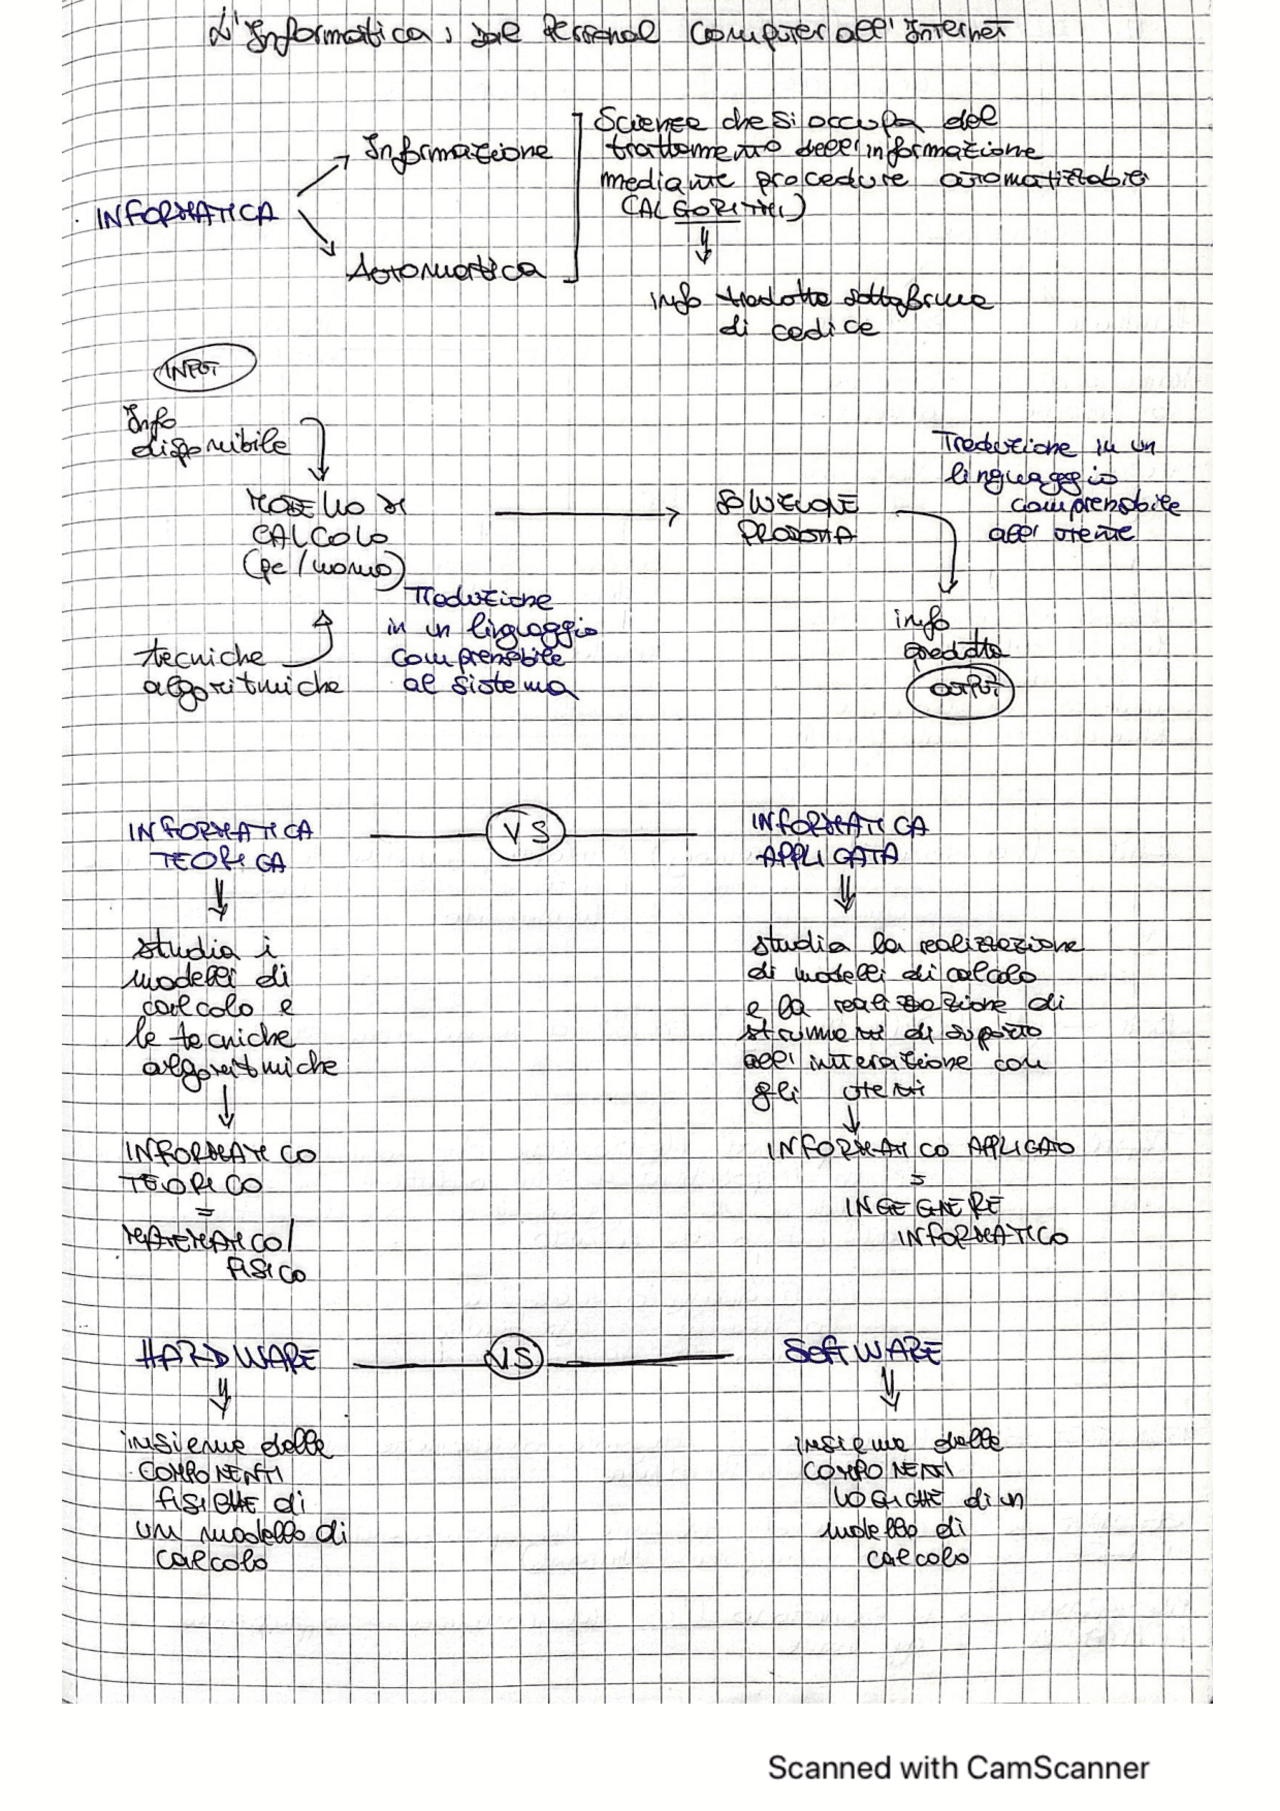 L'Informatica, dal Personal Computer all'Internet
Informazione
INFORMATICA
Automatica
Scienza che si occupa del
trattamento dell'informazione
mediante procedure automatizzabili
(ALGORITMI)
info tradotte sottoforma
di codice
INPUT
Info
disponibile
MODELLO DI
CALCOLO
(pc/uomo)
tecniche
algoritmiche
Traduzione
in un linguaggio
comprensibile
al sistema
SOLUZIONE
PRODOTTA
Traduzione in un
linguaggio
comprensibile
all'utente
info
prodotta
OUTPUT
INFORMATICA
TEORICA
VS
INFORMATICA
APPLICATA
studia i
modelli di
calcolo e
le tecniche
algoritmiche
INFORMATICO
TEORICO
=
MATEMATICO/
FISICO
studia la realizzazione
di modelli di calcolo
e la realizzazione di
strumenti di supporto
all'interazione con
gli utenti
INFORMATICO APPLICATO
=
INGEGNERE
INFORMATICO
HARDWARE
VS
SOFTWARE
insieme delle
COMPONENTI
FISICHE di
un modello di
calcolo
insieme delle
COMPONENTI
LOGICHE di un
modello di
calcolo
Scanned with CamScanner